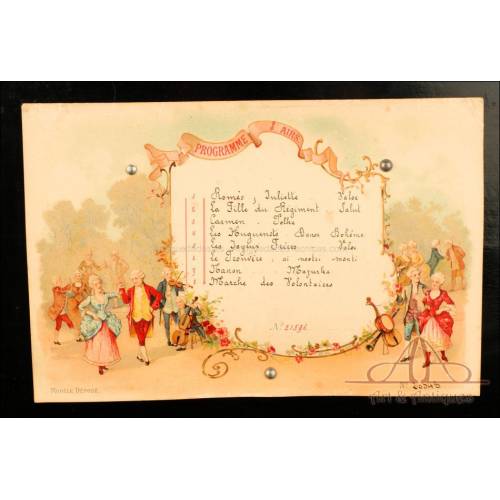 PROGRAMME AIRS
1 Roméo, Juliette Valse
2 La Fille du Régiment Salut
3 Carmen - Polka
4 Les Huguenots Danse Bohême
5 Les Joyeux Frères Valse
6 Le Trouvère, ai nostri monti
7 Manon - Mazurka
8 Marche des Volontaires
Nº 21596
MODÈLE DÉPOSÉ
Art & Antiques